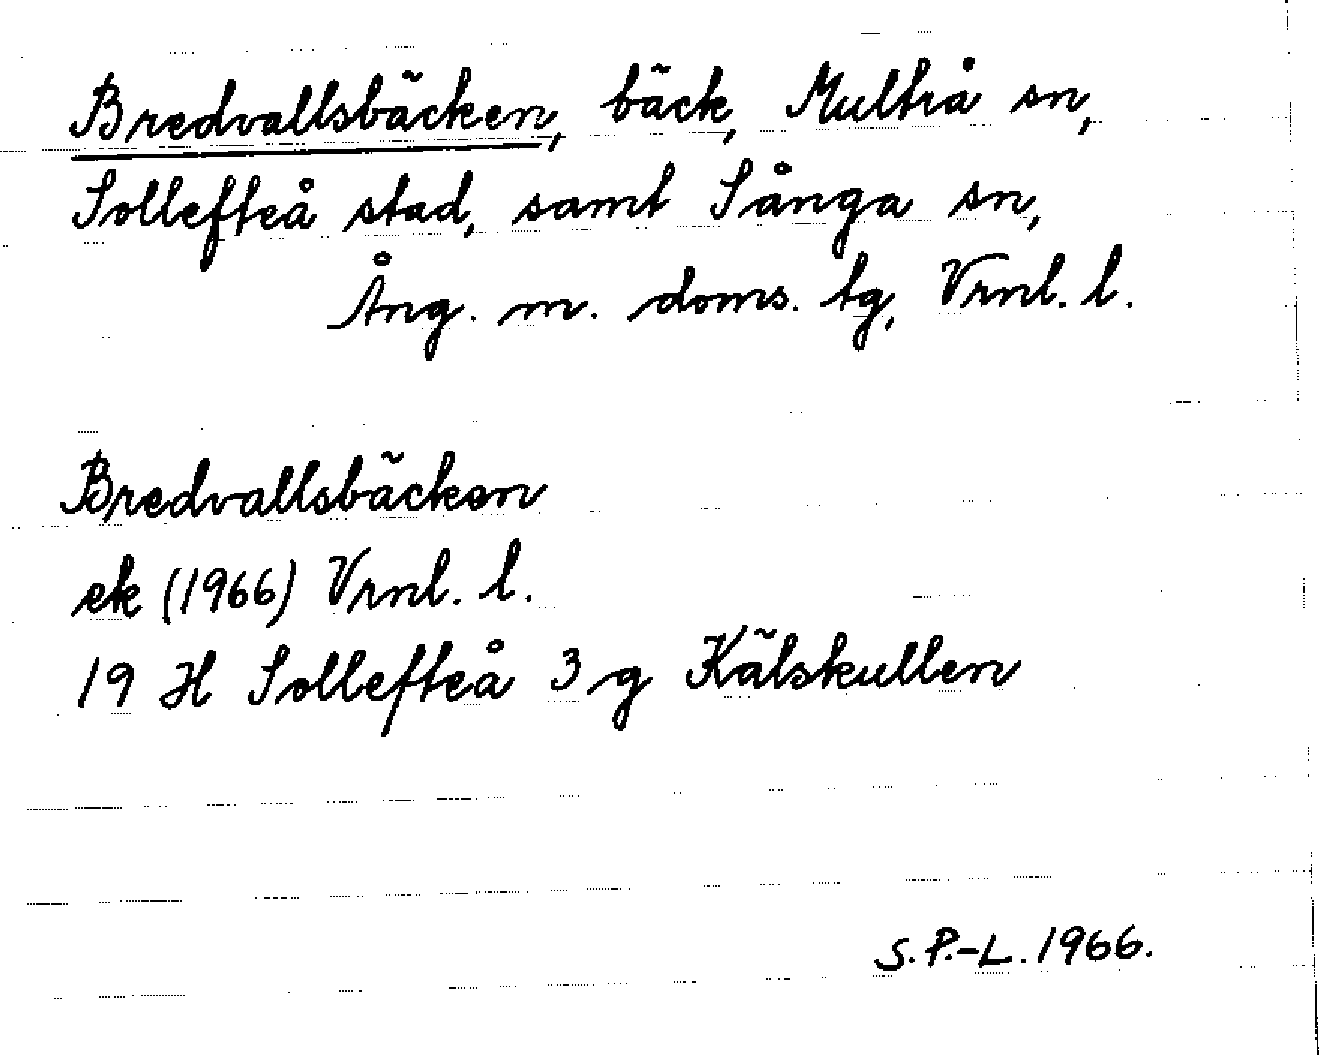 Bredvallsbäcken, bäck, Multrå sn,
Sollefteå stad, samt Sånga sn,
Ång. m. doms. tg, Vrnl. l.
Bredvallsbäcken
ek (1966) Vrnl. l.
19 H Sollefteå 3 g Kälskullen
S. P.-L. 1966.